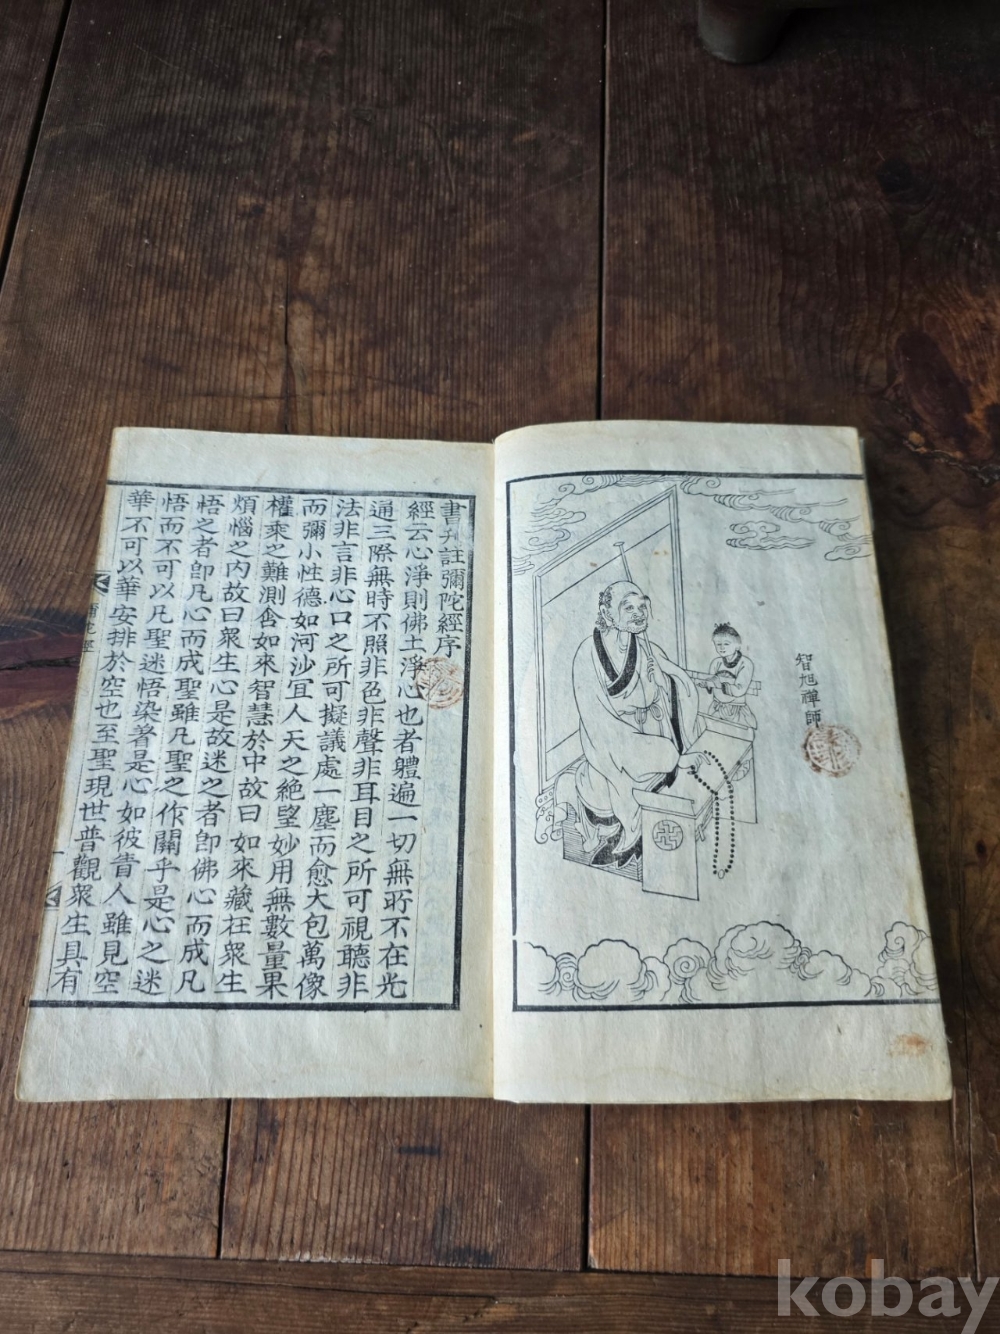 智旭禪師
書刋註彌陀經序
經云心淨則佛土淨心也者體遍一切無所不在光
通三際無時不照非色非聲非耳目之所可視聽非
法非言非心口之所可擬議處一塵而愈大包萬像
而彌小性德如河沙宜人天之絶望妙用無數量果
權乘之難測含如來智慧於中故曰如來藏在衆生
煩惱之內故曰衆生心是故迷之者卽佛心而成凡
悟之者卽凡心而成聖雖凡聖之作關乎是心之迷
悟而不可以凡聖迷悟染著是心如彼眚人雖見空
華不可以華安排於空也至聖現世普觀衆生具有
kobay